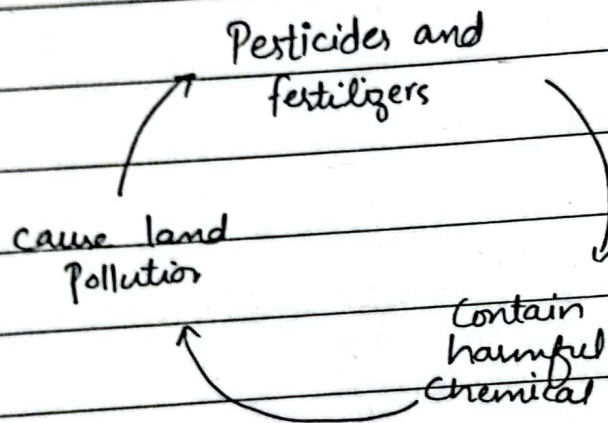 Pesticides and
festilizers
Contain
harmful
Chemical
cause land
Pollution